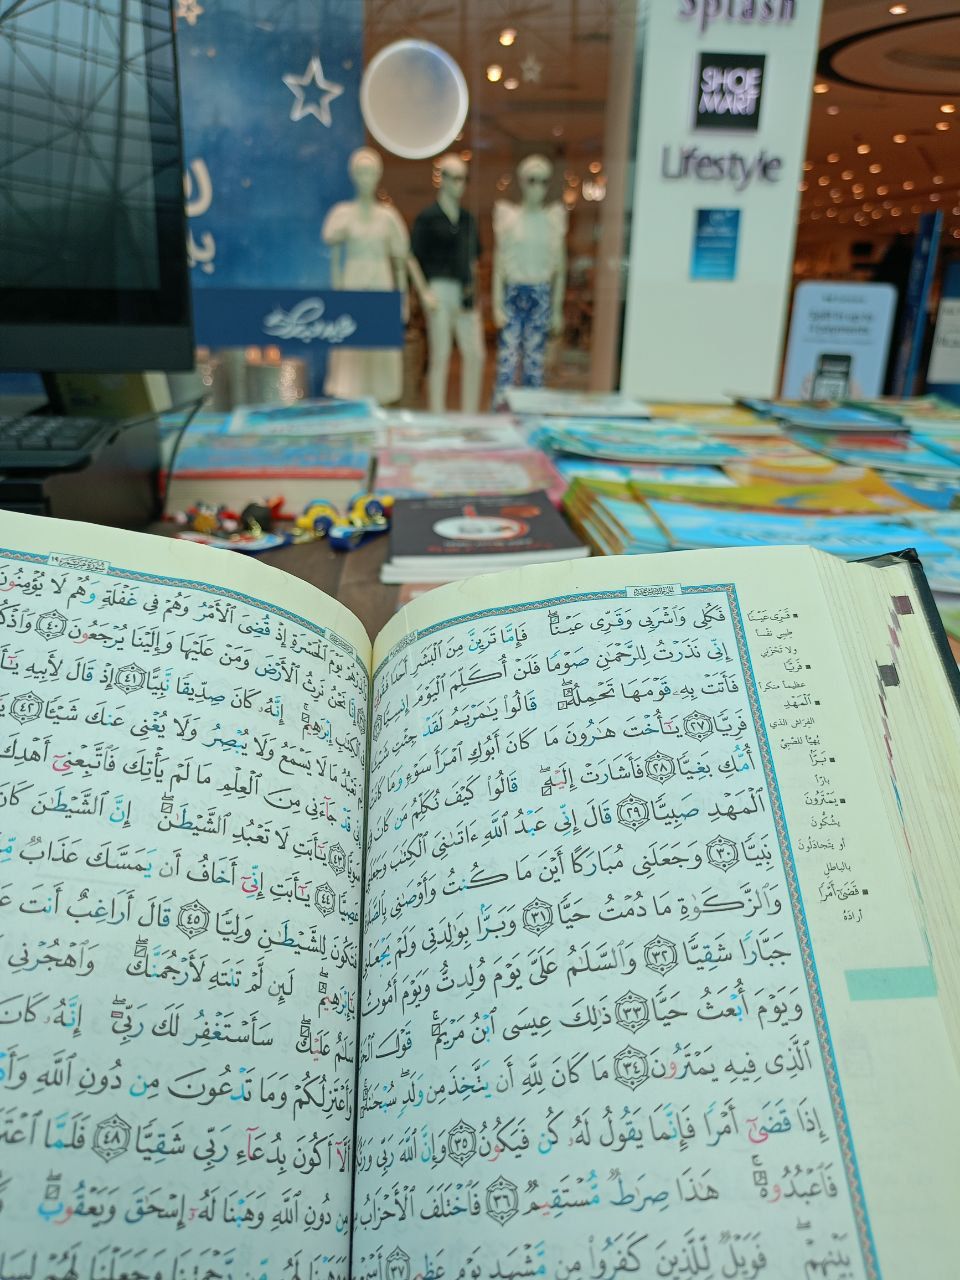 Splash
SHOE
MART
Lifestyle
فَكُلِي وَٱشْرَبِي وَقَرِّي عَيْنًا ۖ فَإِمَّا تَرَيِنَّ مِنَ ٱلْبَشَرِ أَحَدًا
إِنِّي نَذَرْتُ لِلرَّحْمَٰنِ صَوْمًا فَلَنْ أُكَلِّمَ ٱلْيَوْمَ إِنسِيًّا
فَأَتَتْ بِهِۦ قَوْمَهَا تَحْمِلُهُۥ ۖ قَالُوا۟ يَٰمَرْيَمُ لَقَدْ جِئْتِ
فَرِيًّا ﴿٢٧﴾ يَٰٓأُخْتَ هَٰرُونَ مَا كَانَ أَبُوكِ ٱمْرَأَ سَوْءٍ وَمَا كَانَتْ
أُمُّكِ بَغِيًّا ﴿٢٨﴾ فَأَشَارَتْ إِلَيْهِ ۖ قَالُوا۟ كَيْفَ نُكَلِّمُ مَن كَانَ
ٱلْمَهْدِ صَبِيًّا ﴿٢٩﴾ قَالَ إِنِّي عَبْدُ ٱللَّهِ ءَاتَىٰنِيَ ٱلْكِتَٰبَ وَجَعَلَنِي
نَبِيًّا ﴿٣٠﴾ وَجَعَلَنِي مُبَارَكًا أَيْنَ مَا كُنتُ وَأَوْصَٰنِي
وَٱلزَّكَوٰةِ مَا دُمْتُ حَيًّا ﴿٣١﴾ وَبَرًّۢا بِوَٰلِدَتِي وَلَمْ يَجْعَلْنِي
جَبَّارًا شَقِيًّا ﴿٣٢﴾ وَٱلسَّلَٰمُ عَلَيَّ يَوْمَ وُلِدتُّ وَيَوْمَ أَمُوتُ
وَيَوْمَ أُبْعَثُ حَيًّا ﴿٣٣﴾ ذَٰلِكَ عِيسَى ٱبْنُ مَرْيَمَ ۚ قَوْلَ
ٱلَّذِي فِيهِ يَمْتَرُونَ ﴿٣٤﴾ مَا كَانَ لِلَّهِ أَن يَتَّخِذَ مِن وَلَدٍ ۖ سُبْحَٰنَهُۥٓ
إِذَا قَضَىٰٓ أَمْرًا فَإِنَّمَا يَقُولُ لَهُۥ كُن فَيَكُونُ ﴿٣٥﴾ وَإِنَّ ٱللَّهَ رَبِّي
فَٱعْبُدُوهُ ۚ هَٰذَا صِرَٰطٌ مُّسْتَقِيمٌ ﴿٣٦﴾ فَٱخْتَلَفَ ٱلْأَحْزَابُ
بَيْنِهِمْ ۖ فَوَيْلٌ لِّلَّذِينَ كَفَرُوا۟ مِن مَّشْهَدِ يَوْمٍ عَظِيمٍ ﴿٣٧﴾
قَرِّي عَيْنًا
طيبي نفسًا
ولا تحزني
فَرِيًّا
عظيمًا منكرًا
ٱلْمَهْدِ
الفراش الذي
يُهيَّأ للصَّبِيّ
بَرًّۢا
بارًّا
يَمْتَرُونَ
يشكُّون
أو يتجادلون
بالباطل
قَضَىٰٓ أَمْرًا
أراده
يَوْمَ ٱلْحَسْرَةِ إِذْ قُضِيَ ٱلْأَمْرُ وَهُمْ فِي غَفْلَةٍ وَهُمْ لَا يُؤْمِنُونَ
نَحْنُ نَرِثُ ٱلْأَرْضَ وَمَنْ عَلَيْهَا وَإِلَيْنَا يُرْجَعُونَ ﴿٤٠﴾ وَٱذْكُرْ
إِبْرَٰهِيمَ ۚ إِنَّهُۥ كَانَ صِدِّيقًا نَّبِيًّا ﴿٤١﴾ إِذْ قَالَ لِأَبِيهِ
تَعْبُدُ مَا لَا يَسْمَعُ وَلَا يُبْصِرُ وَلَا يُغْنِي عَنكَ شَيْـًٔا ﴿٤٢﴾
قَدْ جَآءَنِي مِنَ ٱلْعِلْمِ مَا لَمْ يَأْتِكَ فَٱتَّبِعْنِيٓ أَهْدِكَ
﴿٤٣﴾ يَٰٓأَبَتِ لَا تَعْبُدِ ٱلشَّيْطَٰنَ ۖ إِنَّ ٱلشَّيْطَٰنَ كَانَ
عَصِيًّا ﴿٤٤﴾ يَٰٓأَبَتِ إِنِّيٓ أَخَافُ أَن يَمَسَّكَ عَذَابٌ
فَتَكُونَ لِلشَّيْطَٰنِ وَلِيًّا ﴿٤٥﴾ قَالَ أَرَاغِبٌ أَنتَ
يَٰٓإِبْرَٰهِيمُ ۖ لَئِن لَّمْ تَنتَهِ لَأَرْجُمَنَّكَ ۖ وَٱهْجُرْنِي
سَلَٰمٌ عَلَيْكَ ۖ سَأَسْتَغْفِرُ لَكَ رَبِّيٓ ۖ إِنَّهُۥ كَانَ
وَأَعْتَزِلُكُمْ وَمَا تَدْعُونَ مِن دُونِ ٱللَّهِ
أَلَّآ أَكُونَ بِدُعَآءِ رَبِّي شَقِيًّا ﴿٤٨﴾ فَلَمَّا
مِن دُونِ ٱللَّهِ وَهَبْنَا لَهُۥٓ إِسْحَٰقَ وَيَعْقُوبَ ۖ
وَوَهَبْنَا لَهُم مِّن رَّحْمَتِنَا وَجَعَلْنَا لَهُمْ